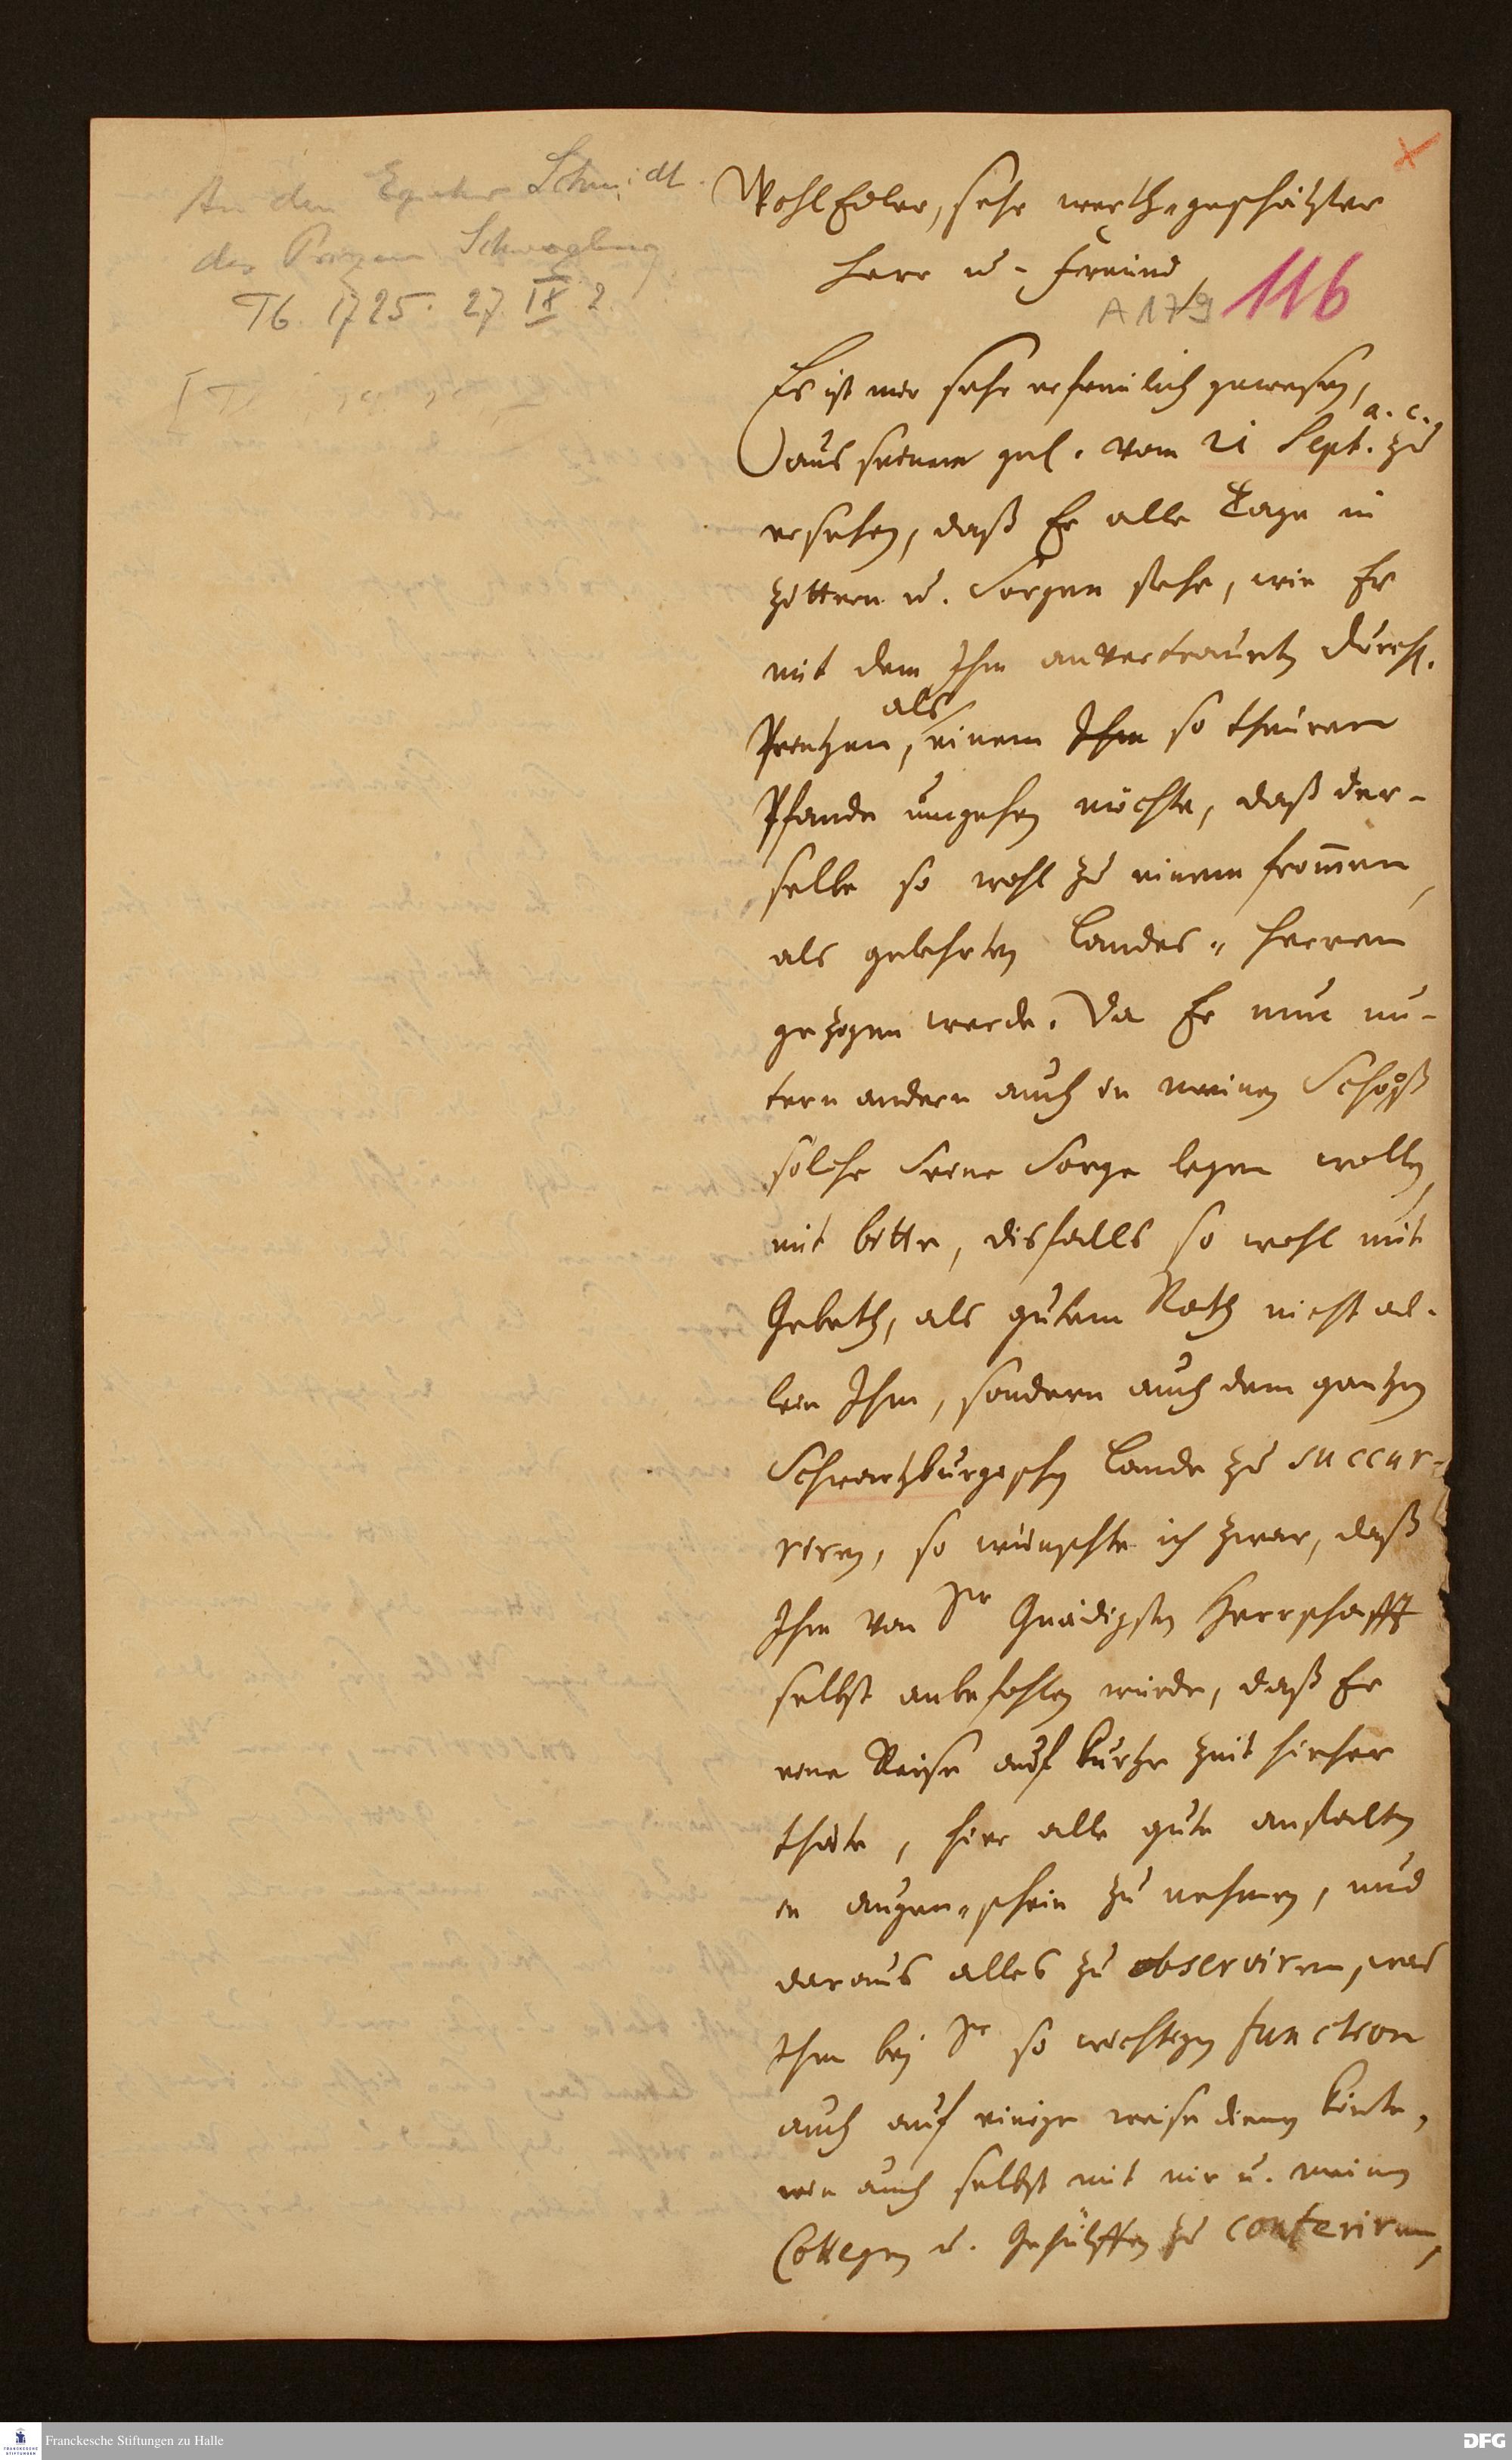 An den Schmidt.
des Prinzen
Tb. 1725. 27 IX 2.
WohlEdler, sehr werth-geschätzter
Herr u. Freund,
A 179 116
Es ist mir sehr erfreulich gewesen,
a. c.
aus seinem gel. vom 21 Sept. zu
ersehen, daß Er alle Tage in
Zittern u. Sorgen stehe, wie Er
mit dem Ihm anvertrauten Durchl.
als
Printzen, einem Ihm so theuren
Pfande umgehen möchte, daß der-
selbe so wohl zu einem from̅en,
als gelehrten Landes-Herren
gezogen werde. Da Er nun un-
tern andern auch in meinen Schooß
solche Seine Sorge legen wollen,
mit bitte, disfalls so wohl mit
Gebeth, als gutem Rath nicht al-
lein Ihm, sondern auch dem gantzen
Schwartzburgischen Lande zu succur-
riren, so wünschte ich zwar, daß
Ihm von Sr Gnädigsten Herrschafft
selbst anbefohlen würde, daß Er
eine Reise auf kurtze Zeit hieher
thäte, hier alle gute anstalten
in augen-schein zu nehmen, und
daraus alles zu observiren, was
Ihm bey Sr so wichtigen function
auch auf einige weise dienen könte,
wie auch selbst mit mir u. meinen
Collegen u. Gehülffen zu conferiren,
Franckesche Stiftungen zu Halle
DFG